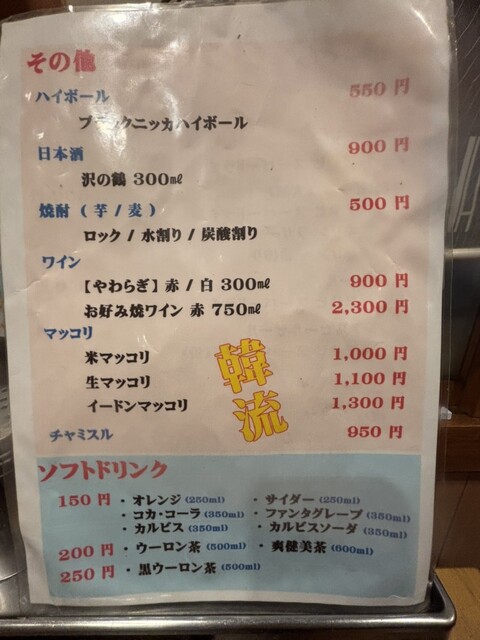 その他
ハイボール 550 円
ブラックニッカハイボール
日本酒 900 円
沢の鶴 300㎖
焼酎 ( 芋 / 麦 ) 500 円
ロック / 水割り / 炭酸割り
ワイン
【やわらぎ】赤 / 白 300㎖ 900 円
お好み焼ワイン 赤 750㎖ 2,300 円
マッコリ
米マッコリ 1,000 円
生マッコリ 1,100 円
イードンマッコリ 1,300 円
韓流
チャミスル 950 円
ソフトドリンク
150 円 ・オレンジ (250ml) ・サイダー (250ml)
・コカ・コーラ (350ml) ・ファンタグレープ (350ml)
・カルピス (350ml) ・カルピスソーダ (350ml)
200 円 ・ウーロン茶 (500ml) ・爽健美茶 (600ml)
250 円 ・黒ウーロン茶 (500ml)